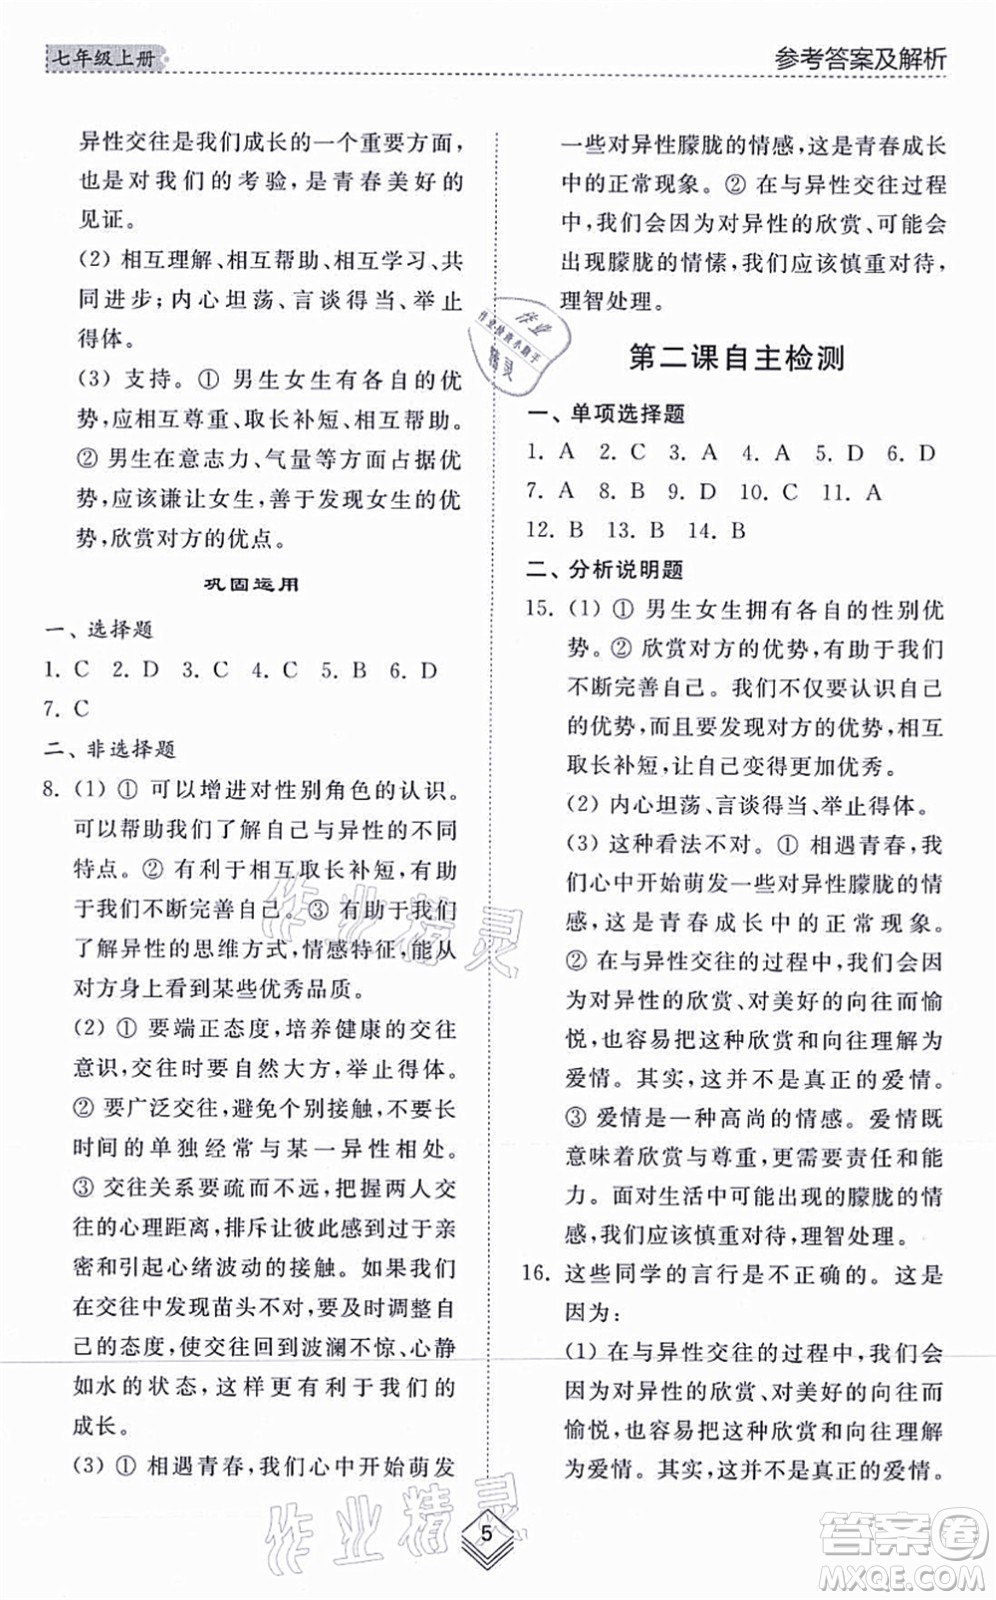 七年级上册
参考答案及解析
异性交往是我们成长的一个重要方面,
也是对我们的考验,是青春美好的
见证。
(2) 相互理解、相互帮助、相互学习、共
同进步;内心坦荡、言谈得当、举止
得体。
(3) 支持。① 男生女生有各自的优
势,应相互尊重、取长补短、相互帮助。
② 男生在意志力、气量等方面占据优
势,应该谦让女生,善于发现女生的优
势,欣赏对方的优点。
巩固运用
一、选择题
1. C 2. D 3. C 4. C 5. B 6. D
7. C
二、非选择题
8. (1) ① 可以增进对性别角色的认识。
可以帮助我们了解自己与异性的不同
特点。② 有利于相互取长补短,帮助
我们不断完善自己。③ 有助于我们
了解异性的思维方式,情感特征,能从
对方身上看到某些优秀品质。
(2) ① 要端正态度,培养健康的交往
意识,交往时要自然大方,举止得体。
② 要广泛交往,避免个别接触,不要长
时间的单独经常与某一异性相处。
③ 交往关系要疏而不远,把握两人交
往的心理距离,排斥让彼此感到过于亲
密和引起心绪波动的接触。如果我们
在交往中发现苗头不对,要及时调整自
己的态度,使交往回到波澜不惊、心静
如水的状态,这样更有利于我们的
成长。
(3) ① 相遇青春,我们心中开始萌发
一些对异性朦胧的情感,这是青春成长
中的正常现象。② 在与异性交往过程
中,我们会因为对异性的欣赏、可能会
出现朦胧的情愫,我们应该慎重对待,
理智处理。
第二课自主检测
一、单项选择题
1. A 2. C 3. A 4. A 5. D 6. D
7. A 8. B 9. D 10. C 11. A
12. B 13. B 14. B
二、分析说明题
15. (1) ① 男生女生拥有各自的性别优
势。② 欣赏对方的优势,有助于我们
不断完善自己。我们不仅要认识自己
的优势,而且要发现对方的优势,相互
取长补短,让自己变得更加优秀。
(2) 内心坦荡、言谈得当、举止得体。
(3) 这种看法不对。① 相遇青春,我
们心中开始萌发一些对异性朦胧的情
感,这是青春成长中的正常现象。
② 在与异性交往的过程中,我们会因
为对异性的欣赏、对美好的向往而愉
悦,也容易把这种欣赏和向往理解为
爱情。其实,这并不是真正的爱情。
③ 爱情是一种高尚的情感。爱情既
意味着欣赏与尊重,更需要责任和能
力。面对生活中可能出现的朦胧的情
感,我们应该慎重对待,理智处理。
16. 这些同学的言行是不正确的。这是
因为:
(1) 在与异性交往的过程中,我们会
因为对异性的欣赏、对美好的向往而
愉悦,也容易把这种欣赏和向往理解
为爱情。其实,这并不是真正的爱情。
5
作业
作业检查小助手
精灵
作业精灵
作业精灵
答案圈
MXQE.COM